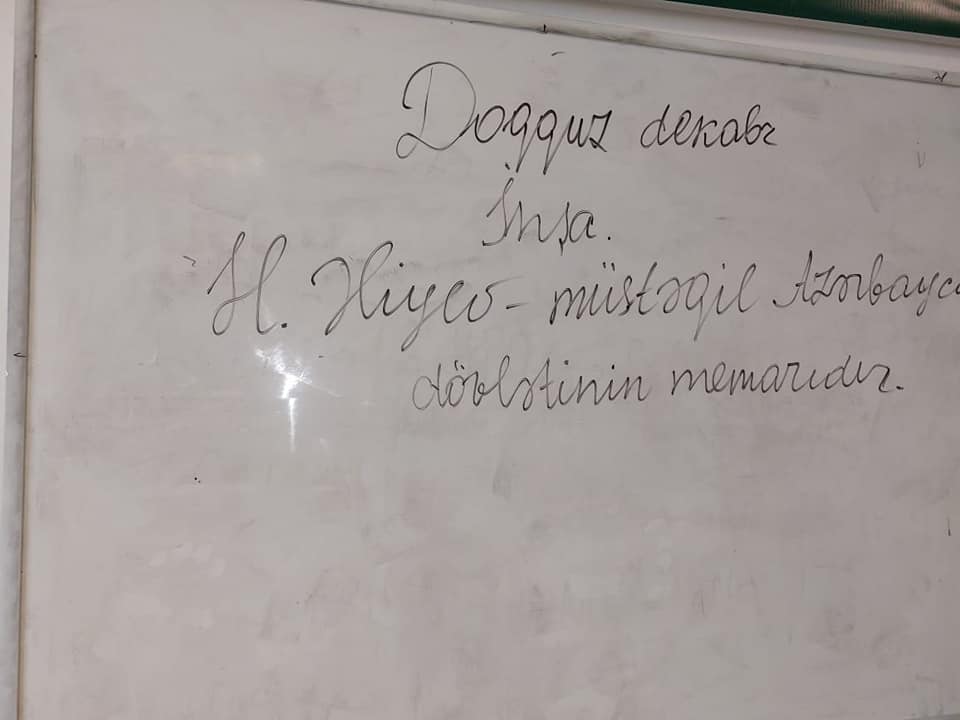 Doqquz dekabr
İnşa.
H. Əliyev – müstəqil Azərbayca
dövlətinin memarıdır.